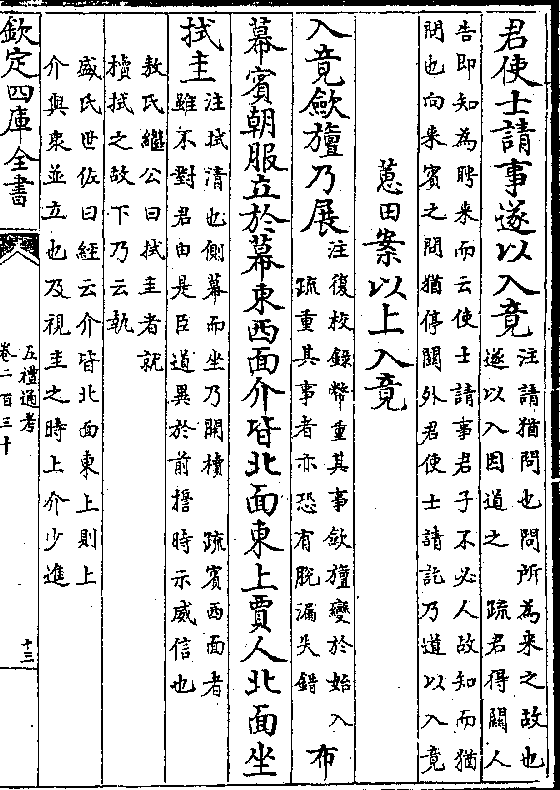 君使士請事遂以入竟注請猶問也問所為来之故也
遂以入因道之　疏君得關人
告即知為聘来而云使士請事君子不必人故知而猶
問也向来賓之問猶停關外君使士請訖乃道以入竟
蕙田案以上入竟
入竟斂旜乃展注復校錄幣重其事斂旜變於始入
疏重其事者亦恐有脫漏失錯
布
幕賓朝服立於幕東西面介皆北面東上賈人北面坐
拭圭注拭清也側幕而坐乃開櫝　疏賓西面者
雖不對君由是臣道異於前摺時示威信也
敖氏繼公曰拭圭者就
櫝拭之故下乃云執
盛氏世佐曰經云介皆北面東上則上
介與衆並立也及視圭之時上介少進
欽定四庫全書
五禮通考
卷二百三十
十三